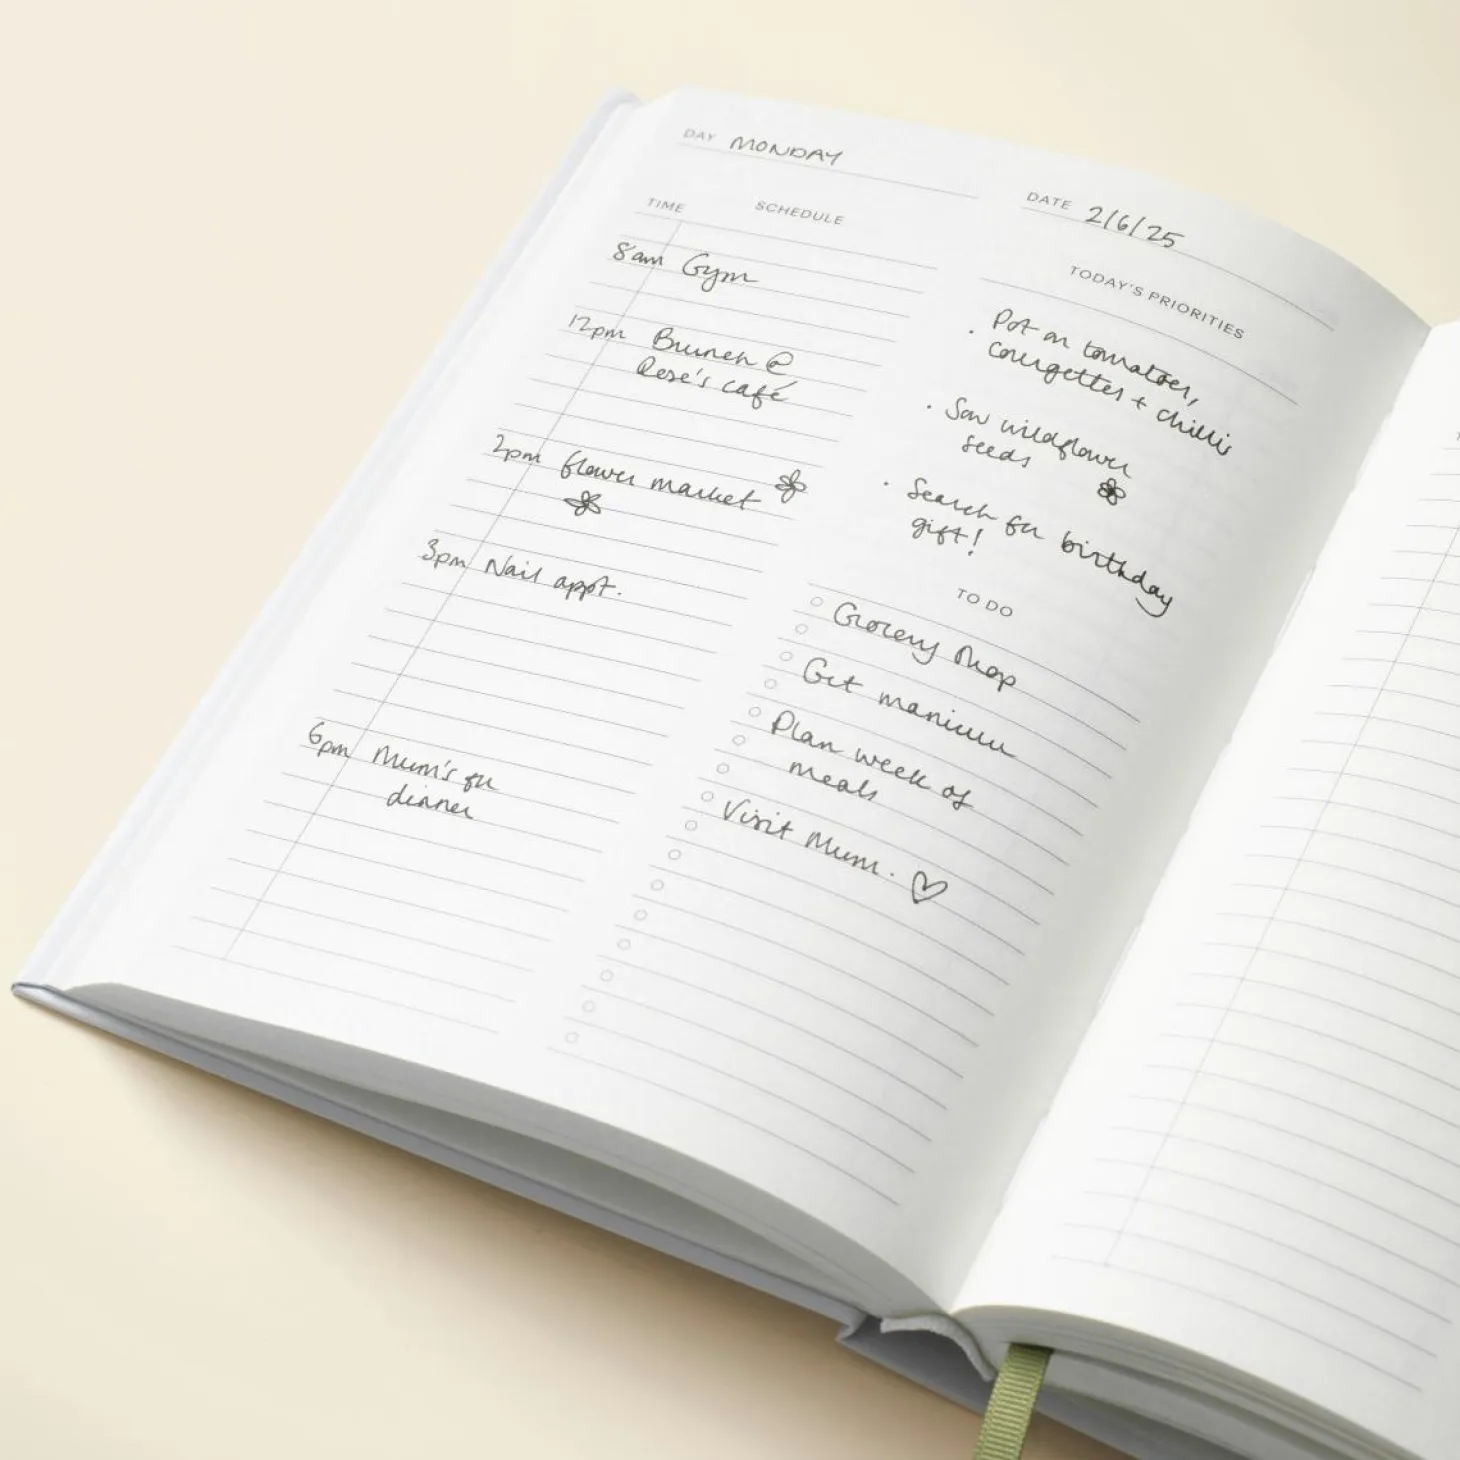 DAY MONDAY
DATE 2/6/25
TIME SCHEDULE
8am Gym
12pm Brunch @
Rose's café
2pm flower market
3pm Nail appt.
6pm Mum's for
dinner
TODAY'S PRIORITIES
· Pot on tomatoes,
courgettes + chillis
· Sow wildflower
seeds
· Search for birthday
gift!
TO DO
Grocery shop
Get manicure
Plan week of
meals
Visit Mum.